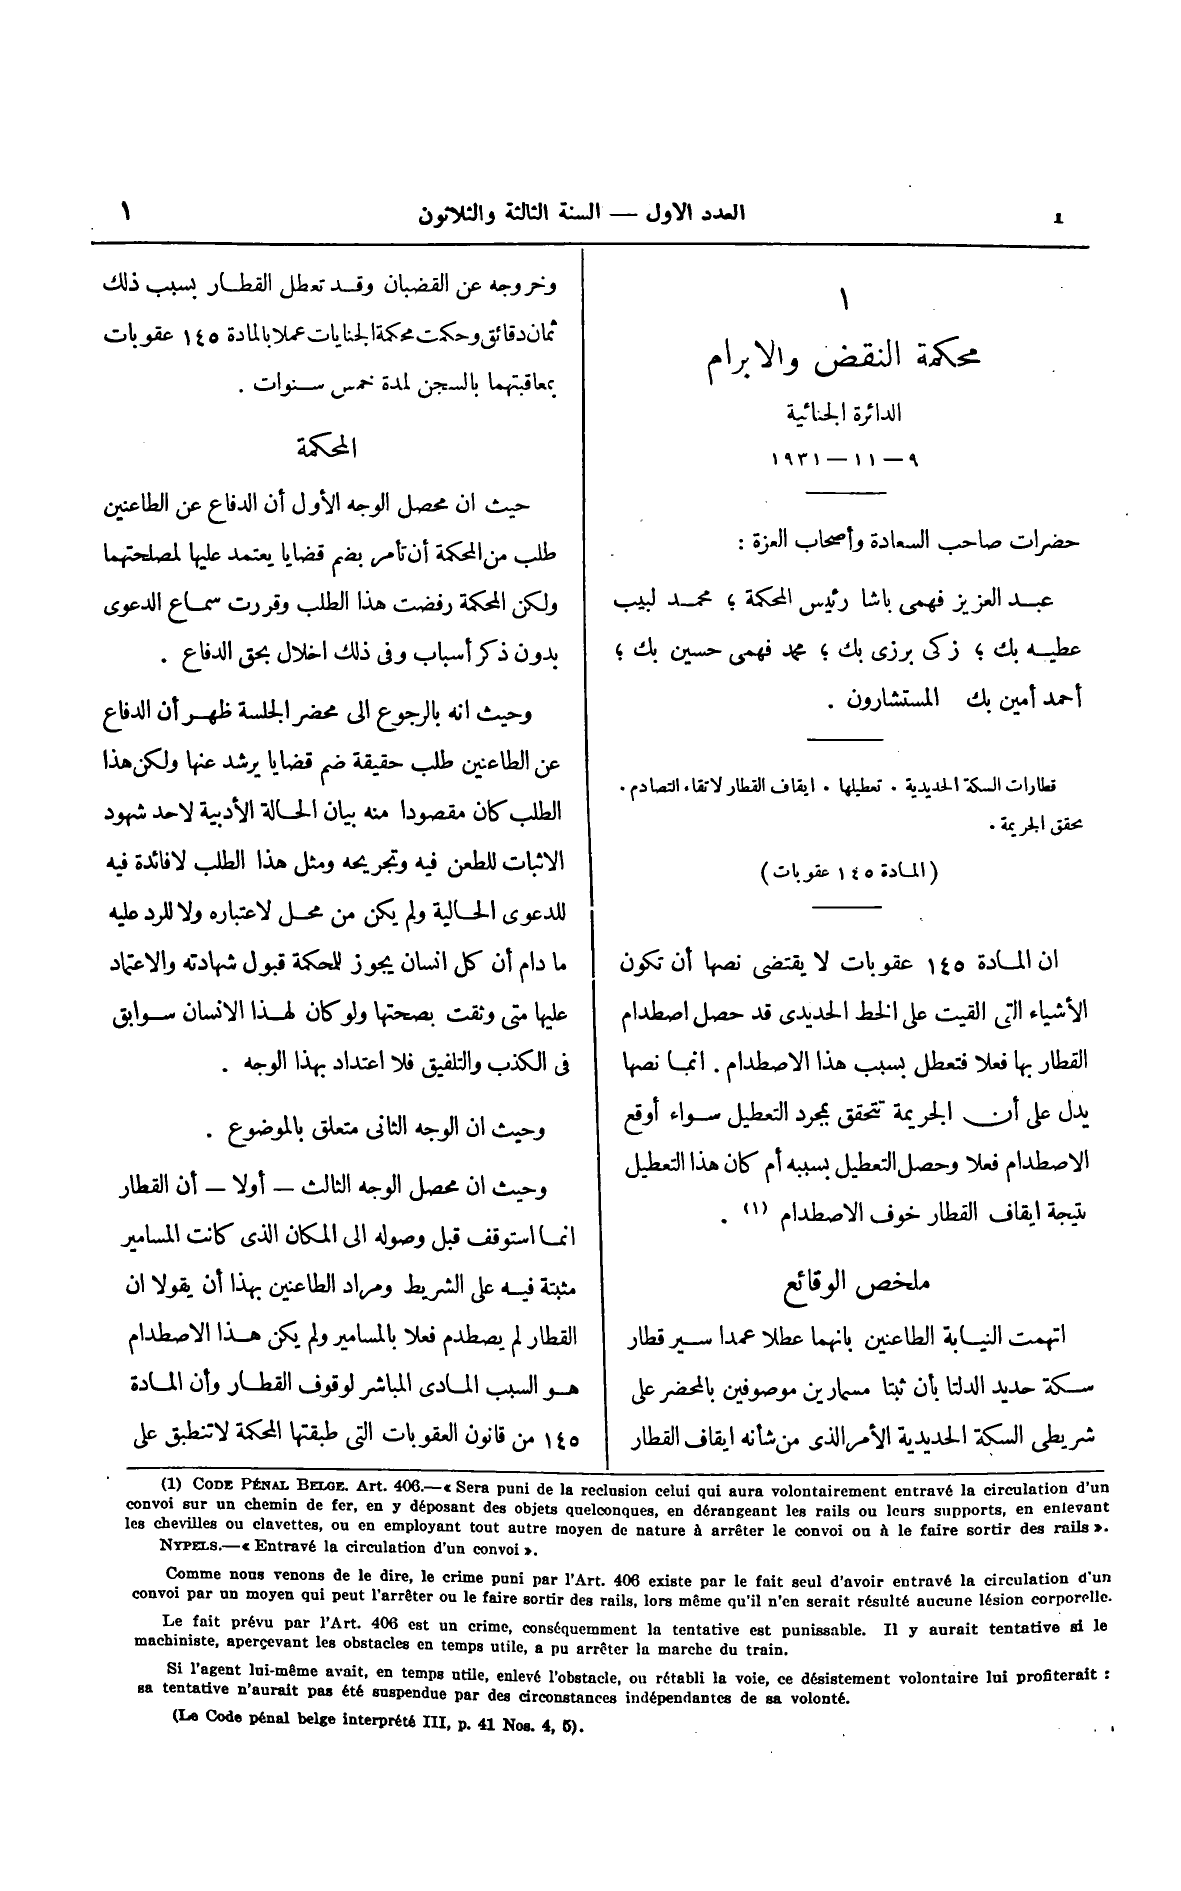 ١ العدد الاول — السنة الثالثة والثلاثون ١
١
محكمة النقض والابرام
الدائرة الجنائية
٩ — ١١ — ١٩٣١
حضرات صاحب السعادة وأصحاب العزة :
عبد العزيز فهمى باشا رئيس المحكمة ؛ محمد لبيب
عطيه بك ؛ زكى برزى بك ؛ محمد فهمى حسين بك ؛
أحمد أمين بك المستشارون .
قطارات السكة الحديدية . تعطيلها . ايقاف القطار لاتقاء التصادم .
يحقق الجريمة .
( المادة ١٤٥ عقوبات )
ان المادة ١٤٥ عقوبات لا يقتضى نصها أن تكون
الأشياء التى القيت على الخط الحديدى قد حصل اصطدام
القطار بها فعلا فتعطل بسبب هذا الاصطدام . انما نصها
يدل على أن الجريمة تتحقق بمجرد التعطيل سواء أوقع
الاصطدام فعلا وحصل التعطيل بسببه أم كان هذا التعطيل
نتيجة ايقاف القطار خوف الاصطدام (١) .
ملخص الوقائع
اتهمت النيابة الطاعنين بانهما عطلا عمدا سير قطار
سكة حديد الدلتا بأن ثبتا مسمارين موصوفين بالمحضر على
شريطى السكة الحديدية الأمر الذى من شأنه ايقاف القطار
وخروجه عن القضبان وقد تعطل القطار بسبب ذلك
ثمان دقائق وحكمت محكمة الجنايات عملا بالمادة ١٤٥ عقوبات
بمعاقبتهما بالسجن لمدة خمس سنوات .
المحكمة
حيث ان محصل الوجه الأول أن الدفاع عن الطاعنين
طلب من المحكمة أن تأمر بضم قضايا يعتمد عليها لمصلحتهما
ولكن المحكمة رفضت هذا الطلب وقررت سماع الدعوى
بدون ذكر أسباب وفى ذلك اخلال بحق الدفاع .
وحيث انه بالرجوع الى محضر الجلسة ظهر أن الدفاع
عن الطاعنين طلب حقيقة ضم قضايا يرشد عنها ولكن هذا
الطلب كان مقصودا منه بيان الحالة الأدبية لاحد شهود
الاثبات للطعن فيه وتجريحه ومثل هذا الطلب لا فائدة فيه
للدعوى الحالية ولم يكن من محل لاعتباره ولا للرد عليه
ما دام أن كل انسان يجوز للحكمة قبول شهادته والاعتماد
عليها متى وثقت بصحتها ولو كان لهذا الانسان سوابق
فى الكذب والتلفيق فلا اعتداد بهذا الوجه .
وحيث ان الوجه الثانى متعلق بالموضوع .
وحيث ان محصل الوجه الثالث — أولا — أن القطار
انما استوقف قبل وصوله الى المكان الذى كانت المسامير
مثبتة فيه على الشريط ومراد الطاعنين بهذا أن يقولا ان
القطار لم يصطدم فعلا بالمسامير ولم يكن هذا الاصطدام
هو السبب المادى المباشر لوقوف القطار وأن المادة
١٤٥ من قانون العقوبات التى طبقتها المحكمة لا تنطبق على
(1) CODE PÉNAL BELGE. Art. 406.—« Sera puni de la reclusion celui qui aura volontairement entravé la circulation d'un
convoi sur un chemin de fer, en y déposant des objets quelconques, en dérangeant les rails ou leurs supports, en enlevant
les chevilles ou clavettes, ou en employant tout autre moyen de nature à arrêter le convoi ou à le faire sortir des rails ».
NYPELS.—« Entravé la circulation d'un convoi ».
Comme nous venons de le dire, le crime puni par l'Art. 406 existe par le fait seul d'avoir entravé la circulation d'un
convoi par un moyen qui peut l'arrêter ou le faire sortir des rails, lors même qu'il n'en serait résulté aucune lésion corporelle.
Le fait prévu par l'Art. 406 est un crime, conséquemment la tentative est punissable. Il y aurait tentative si le
machiniste, aperçevant les obstacles en temps utile, a pu arrêter la marche du train.
Si l'agent lui-même avait, en temps utile, enlevé l'obstacle, ou rétabli la voie, ce désistement volontaire lui profiterait :
sa tentative n'aurait pas été suspendue par des circonstances indépendantes de sa volonté.
(Le Code pénal belge interprété III, p. 41 Nos. 4, 5).